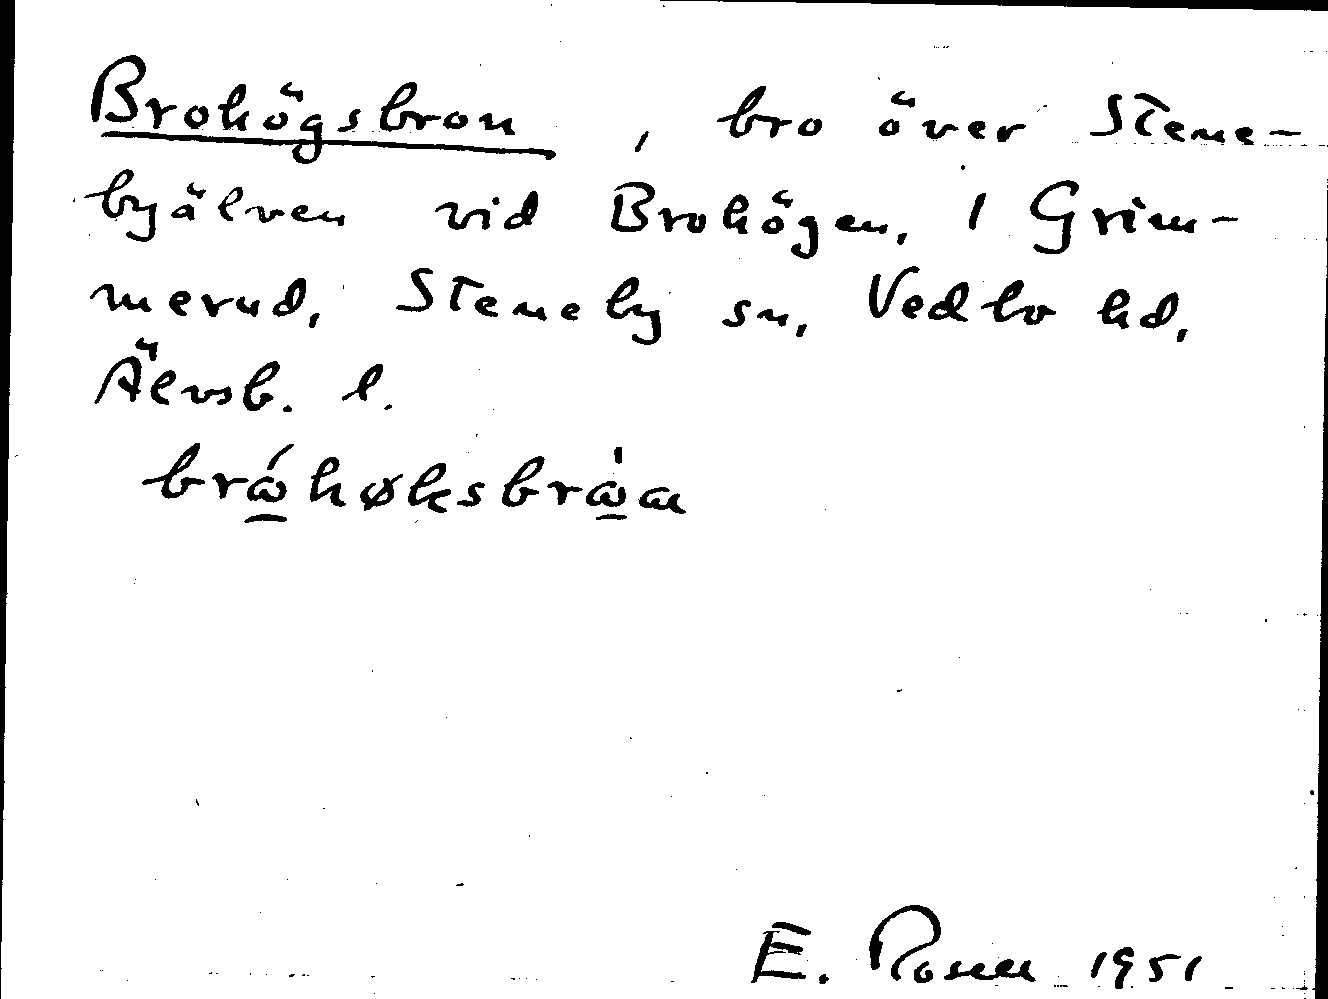 Brohögsbron, bro över Stene-
byälven vid Brohögen, 1 Grim-
merud, Steneby sn, Vedbo hd,
Älvsb. l.
brώ̲høksbrὼ̲a
E. Rosell 1951